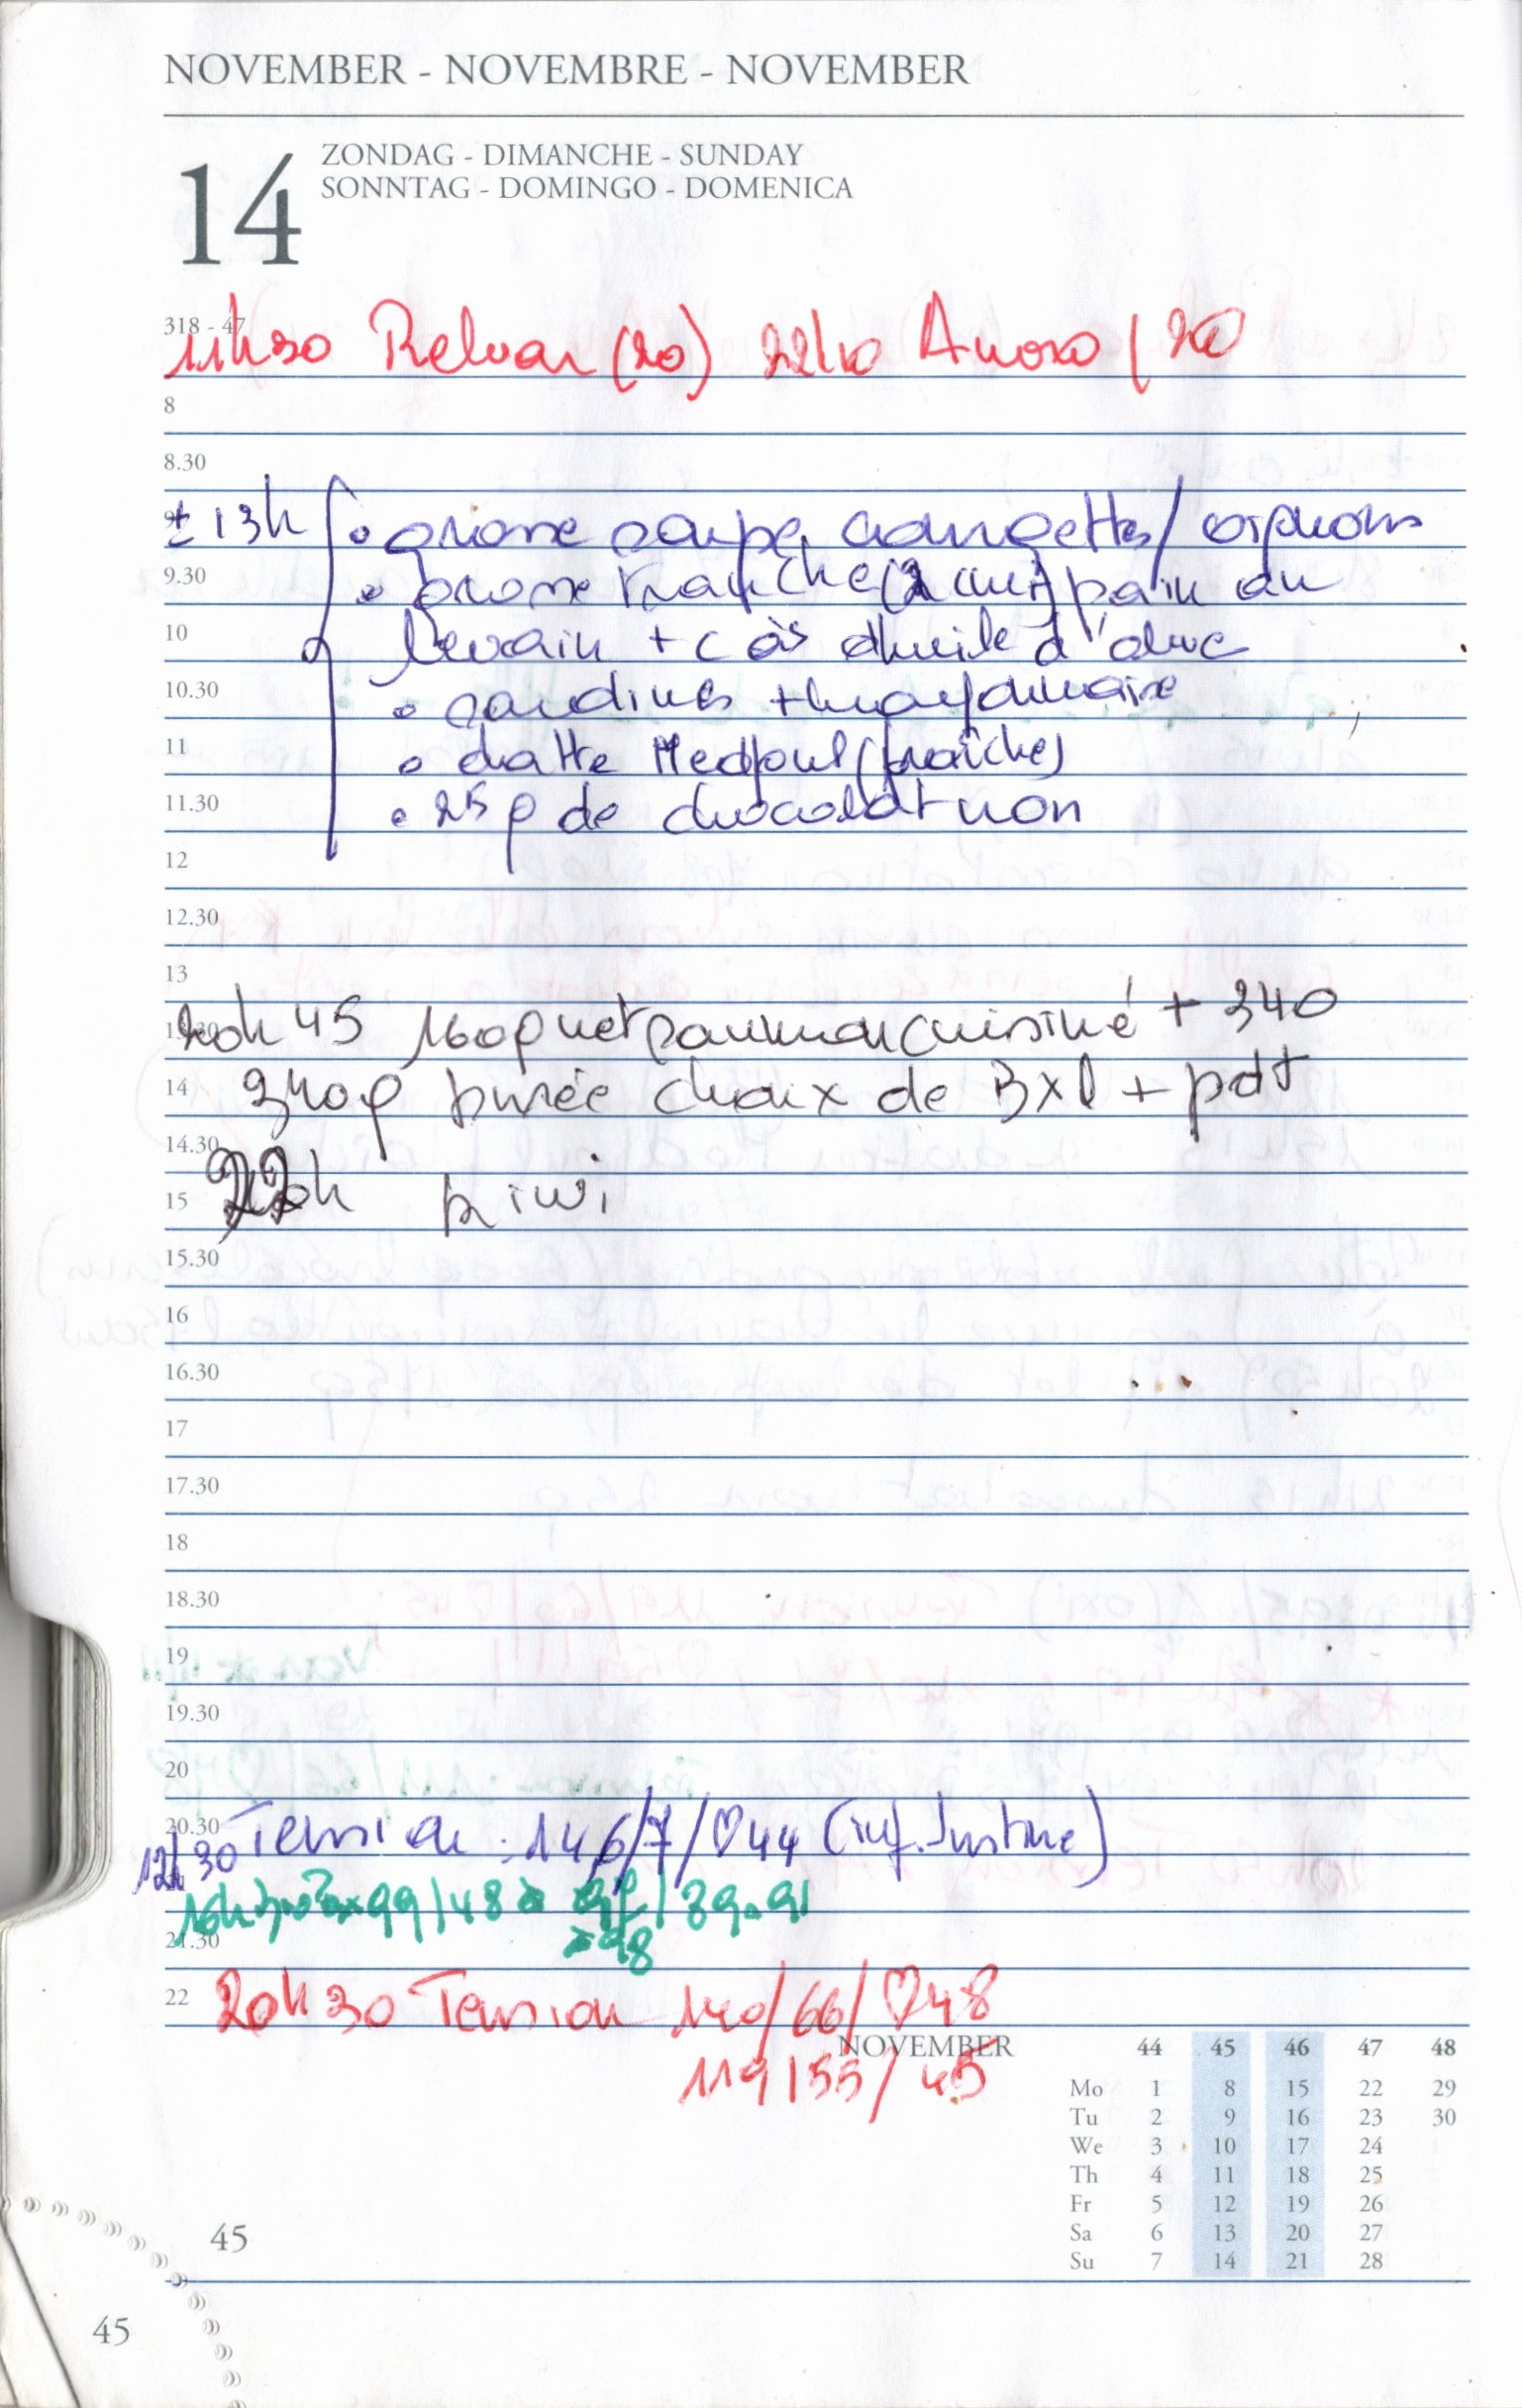 NOVEMBER - NOVEMBRE - NOVEMBER
14
ZONDAG - DIMANCHE - SUNDAY
SONNTAG - DOMINGO - DOMENICA
318 - 47
11h30 Relvar (20) 22h10
8
8.30
± 13h • grosse soupe courgettes/
9.30
• grosse tranche (2 cm) pain au
10
levain + c às d'huile d'olive
10.30
• sardines + mayonnaise
11
• datte Medjoul (fraîche)
11.30
• 25 g de chocolat noir
12
12.30
13
20h45 160g net saumon cuisiné + 340
14
340g purée choux de Bxl + pdt
14.30
22h kiwi
15
15.30
16
16.30
17
17.30
18
18.30
19
19.30
20
20.30
12h30 Tension : 146/7/♡44 (inf. Justine)
16h 99/48 98 / 89.91
21.30
22
20h30 Tension 140/66/♡48
119/55/45
NOVEMBER 44 45 46 47 48
Mo 1 8 15 22 29
Tu 2 9 16 23 30
We 3 10 17 24
Th 4 11 18 25
Fr 5 12 19 26
Sa 6 13 20 27
Su 7 14 21 28
45
45